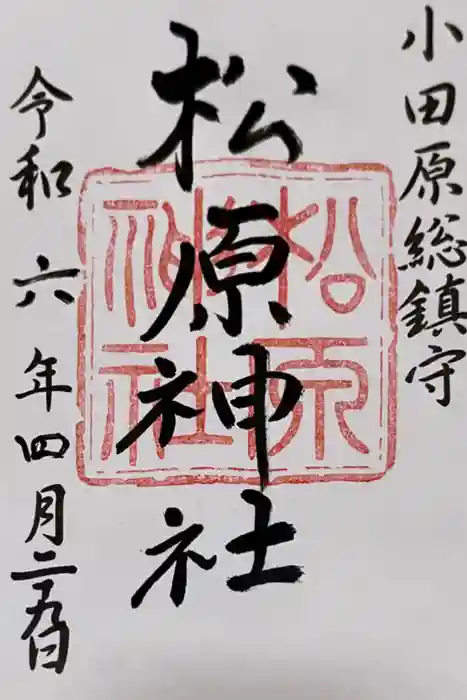 小田原総鎮守
松原神社
松原神社
令和六年四月二十九日